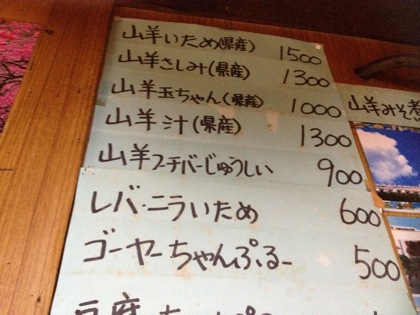 山羊いため(県産) 1500
山羊さしみ(県産) 1300
山羊玉ちゃん(県産) 1000
山羊汁(県産) 1300
山羊フーチバーじゅうしい 900
レバ・ニラいため 600
ゴーヤーちゃんぷるー 500
豆腐ちゃんぷ
山羊みそ煮